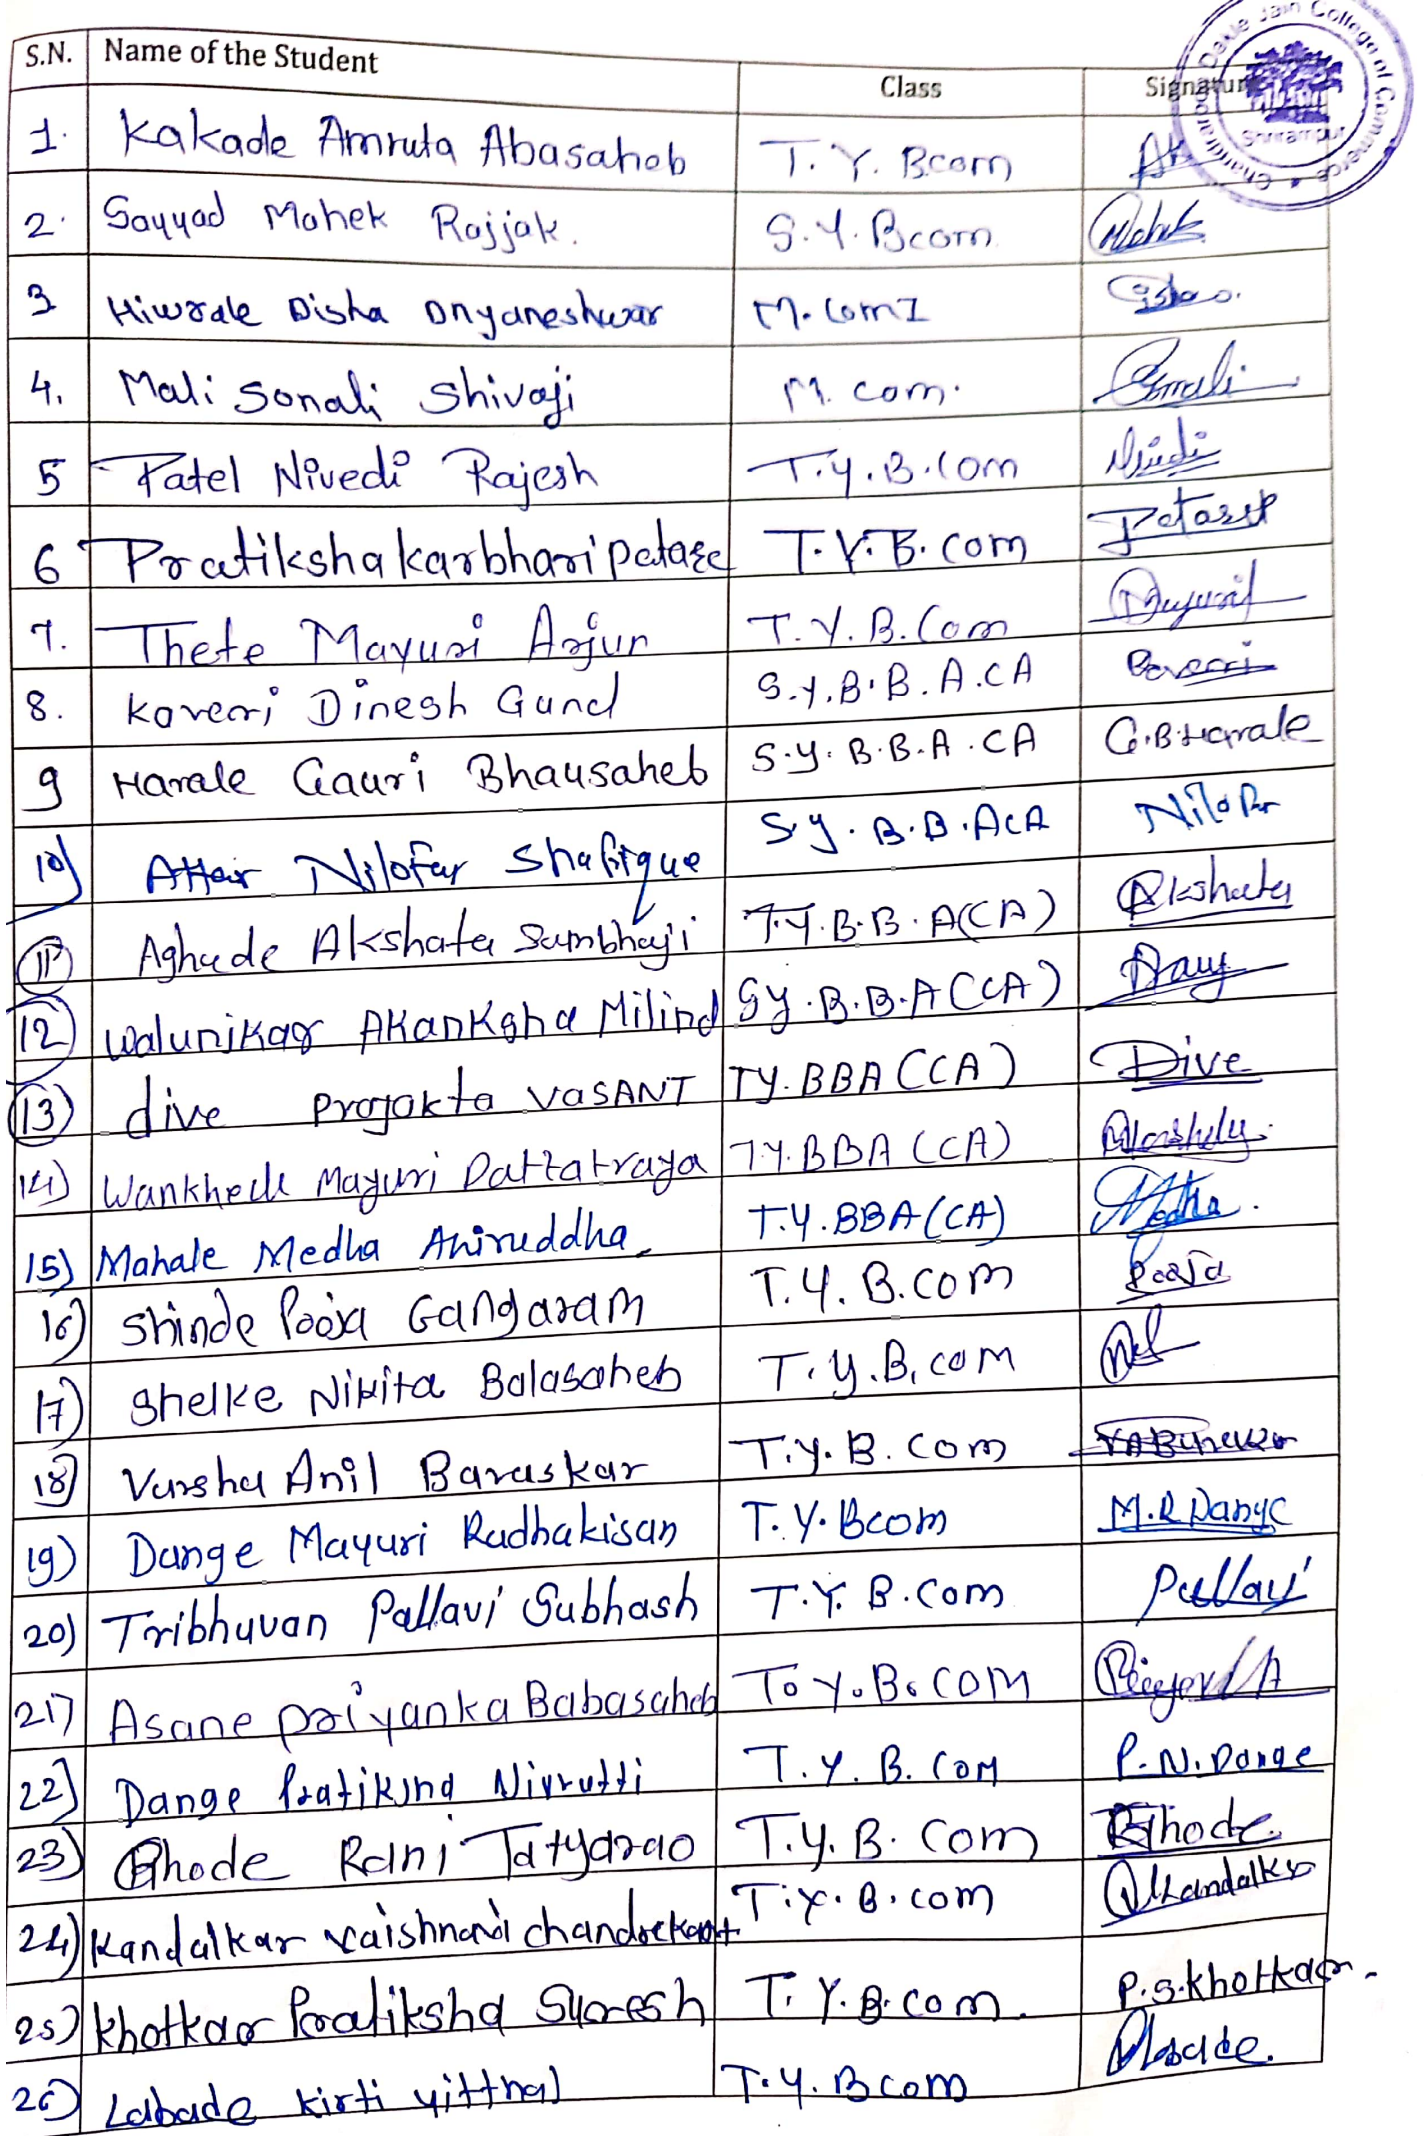 Jain College of Commerce
Shrirampur
S.N. Name of the Student Class Signature
1. Kakade Amruta Abasaheb T. Y. Bcom
2. Sayyad Mahek Rajjak. S.Y. Bcom Mahek
3 Hiwrale Disha Dnyaneshwar M. Com I Disha
4. Mali Sonali Shivaji M. com. Sonali
5 Patel Nivedi Rajesh T.Y.B.Com Nivedi
6 Pratiksha karbhari patare T.Y.B. com
7. Thete Mayuri Arjun T.Y.B.Com Mayuri
8. Kaveri Dinesh Gund S.Y.B.B.A.CA Kaveri
9 Harale Gauri Bhausaheb S.Y.B.B.A.CA G.B.Harale
10) Attar Nilofar Shafique SY.B.B.ACA
11) Aghade Akshata Sambhaji T.Y.B.B.A(CA) Akshata
12) Walunjkar Akanksha Milind SY.B.B.A(CA)
13) dive prajakta VASANT TY.BBA(CA) Dive
14) Wankhede Mayuri Dattatraya TY.BBA(CA)
15) Mahale Medha Aniruddha T.Y.BBA(CA) Medha.
16) Shinde Pooja Gangaram T.Y.B.COM Pooja
17) Shelke Nikita Balasaheb T.Y.B.COM
18) Varsha Anil Baraskar T.Y.B.Com
19) Dange Mayuri Radhakisan T.Y.Bcom M.R Dange
20) Tribhuvan Pallavi Subhash T.Y.B.Com Pallavi
21) Asane priyanka Babasaheb T.Y.B.COM
22) Dange Pratiksha Nivrutti T.Y.B.COM P.N.Dange
23) Rhode Rani Tatyarao T.Y.B.Com Rhode
24) Kandalkar vaishnavi chandrakant T.Y.B.com
25) Khotkar Pratiksha Suresh T.Y.B.com. P.S.Khotkar.
26) Labade kirti vitthal T.Y.Bcom